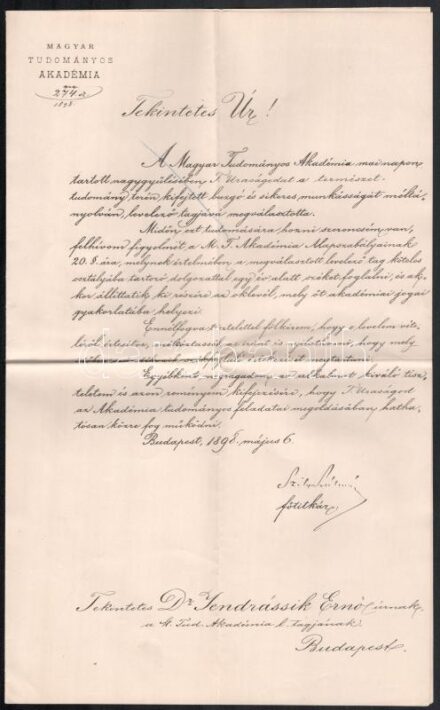 MAGYAR
TUDOMÁNYOS
AKADÉMIA
274
1898
Tekintetes Úr!
A Magyar Tudományos Akadémia mai napon
tartott nagygyűlésében T. Uraságodat a természet-
tudomány terén kifejtett buzgó és sikeres munkásságát méltá-
nyolván, levelező tagjává megválasztotta.
Midőn ezt tudomására hozni szerencsém van,
felhívom figyelmét a M. T. Akadémia Alapszabályainak
20. §-ára, melynek értelmében a megválasztott levelező tag köteles
osztályába tartozó dolgozattal egy év alatt széket foglalni, és ak-
kor állíttatik ki részére az oklevél, mely őt akadémiai jogai
gyakorlatába helyezi.
Ennélfogva tisztelettel felkérem, hogy e levelem véte-
léről értesíteni, hogy mely
Egyébként megragadom az alkalmat kiváló tisz-
teletem és azon reményem kifejezésére, hogy T. Uraságod
az Akadémia tudományos feladatai megoldásában hatha-
tósan közre fog működni.
Budapest, 1898. május 6.
főtitkár.
Tekintetes Dr Jendrássik Ernő úrnak
a M. Tud. Akadémia l. tagjának
Budapest.